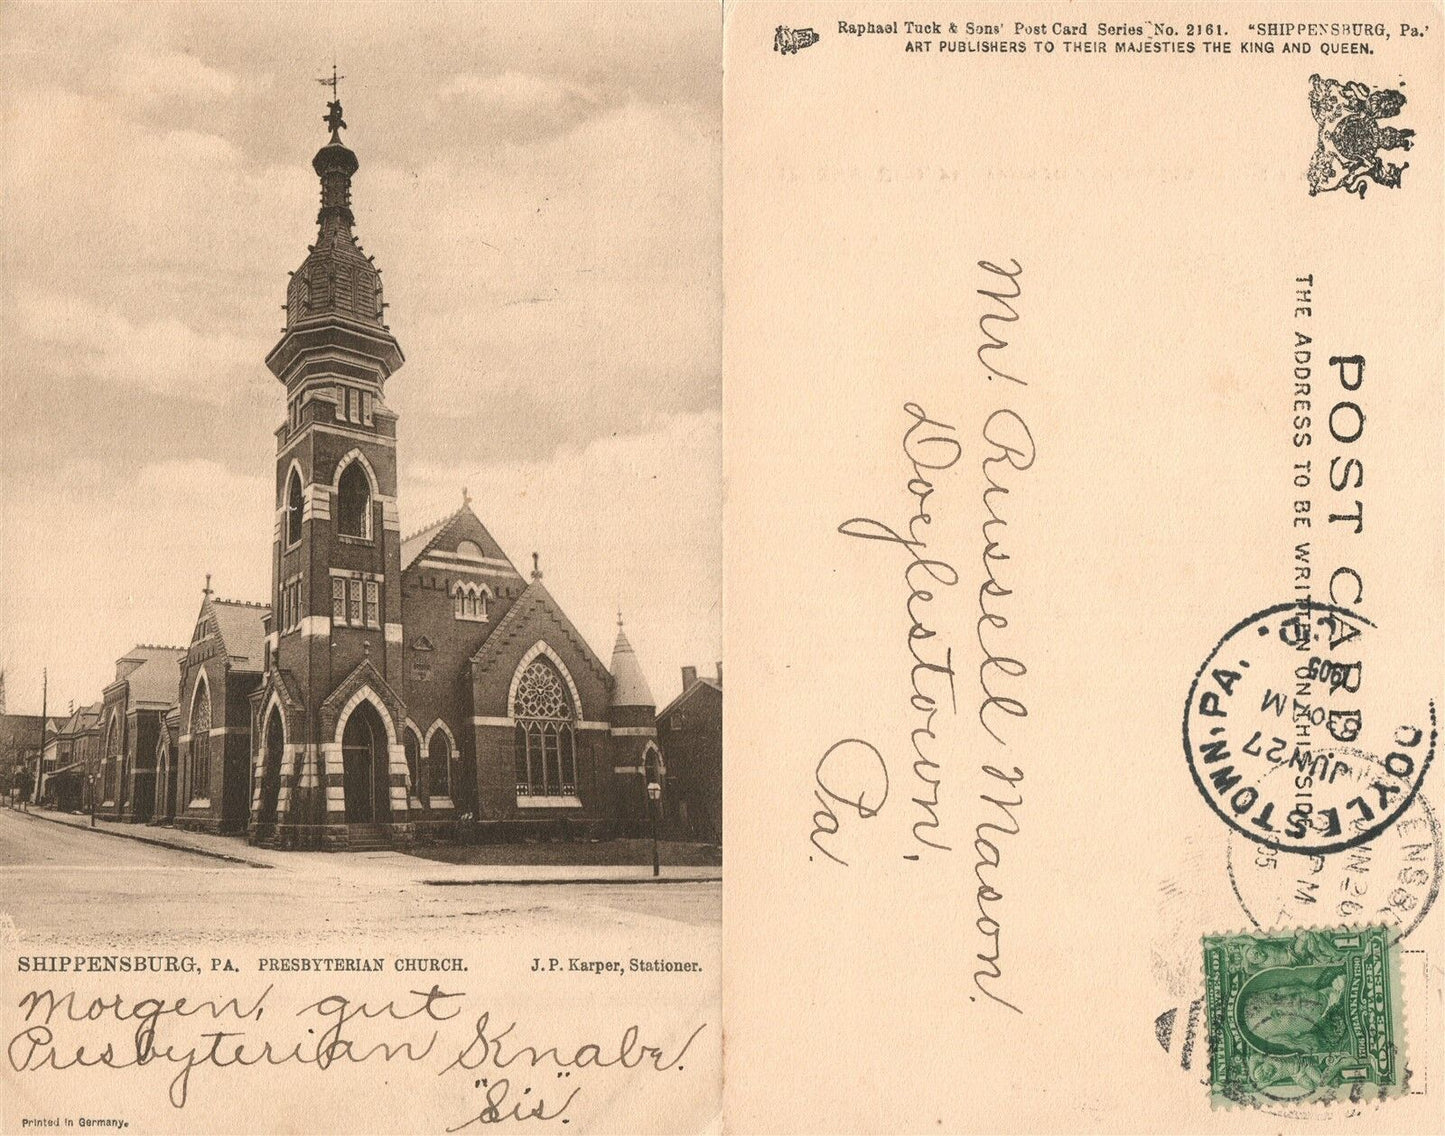 SHIPPENSBURG, PA. PRESBYTERIAN CHURCH. J. P. Karper, Stationer.
Morgen, gut
Presbyterian Knabe.
"Sis".
Printed in Germany.
Raphael Tuck & Sons' Post Card Series No. 2161. "SHIPPENSBURG, Pa."
ART PUBLISHERS TO THEIR MAJESTIES THE KING AND QUEEN.
POST CARD
THE ADDRESS TO BE WRITTEN ON THIS SIDE
Mr. Russell Mason
Doylestown,
Pa.
DOYLESTOWN, PA.
JUN 27
30 M
1905
REC'D.
JUN 26
PM
1905
FRANKLIN
ONE CENT